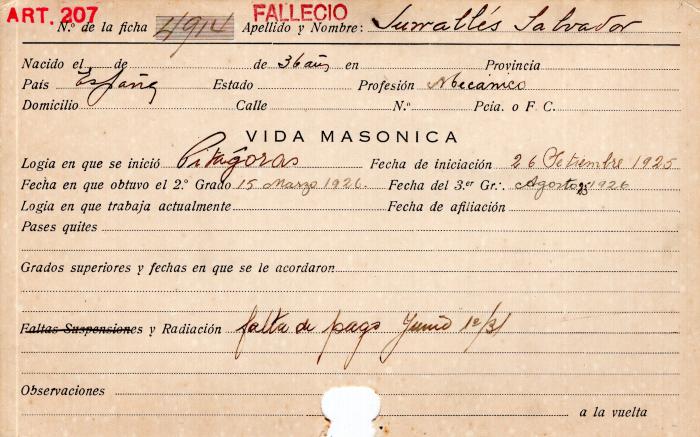 ART. 207 FALLECIO
N.º de la ficha 4914 Apellido y Nombre: Surrallés Salvador
Nacido el de de 36 añ en Provincia
País España Estado Profesión Mecánico
Domicilio Calle N.º Pcia. o F. C.
VIDA MASONICA
Logia en que se inició Pitágoras Fecha de iniciación 26 Setiembre 1925
Fecha en que obtuvo el 2.º Grado 15 Marzo 1926. Fecha del 3.er Gr∴. Agosto 25 1926
Logia en que trabaja actualmente Fecha de afiliación
Pases quites
Grados superiores y fechas en que se le acordaron
Faltas Suspensiones y Radiación falta de pago Junio 1º/31
Observaciones
a la vuelta